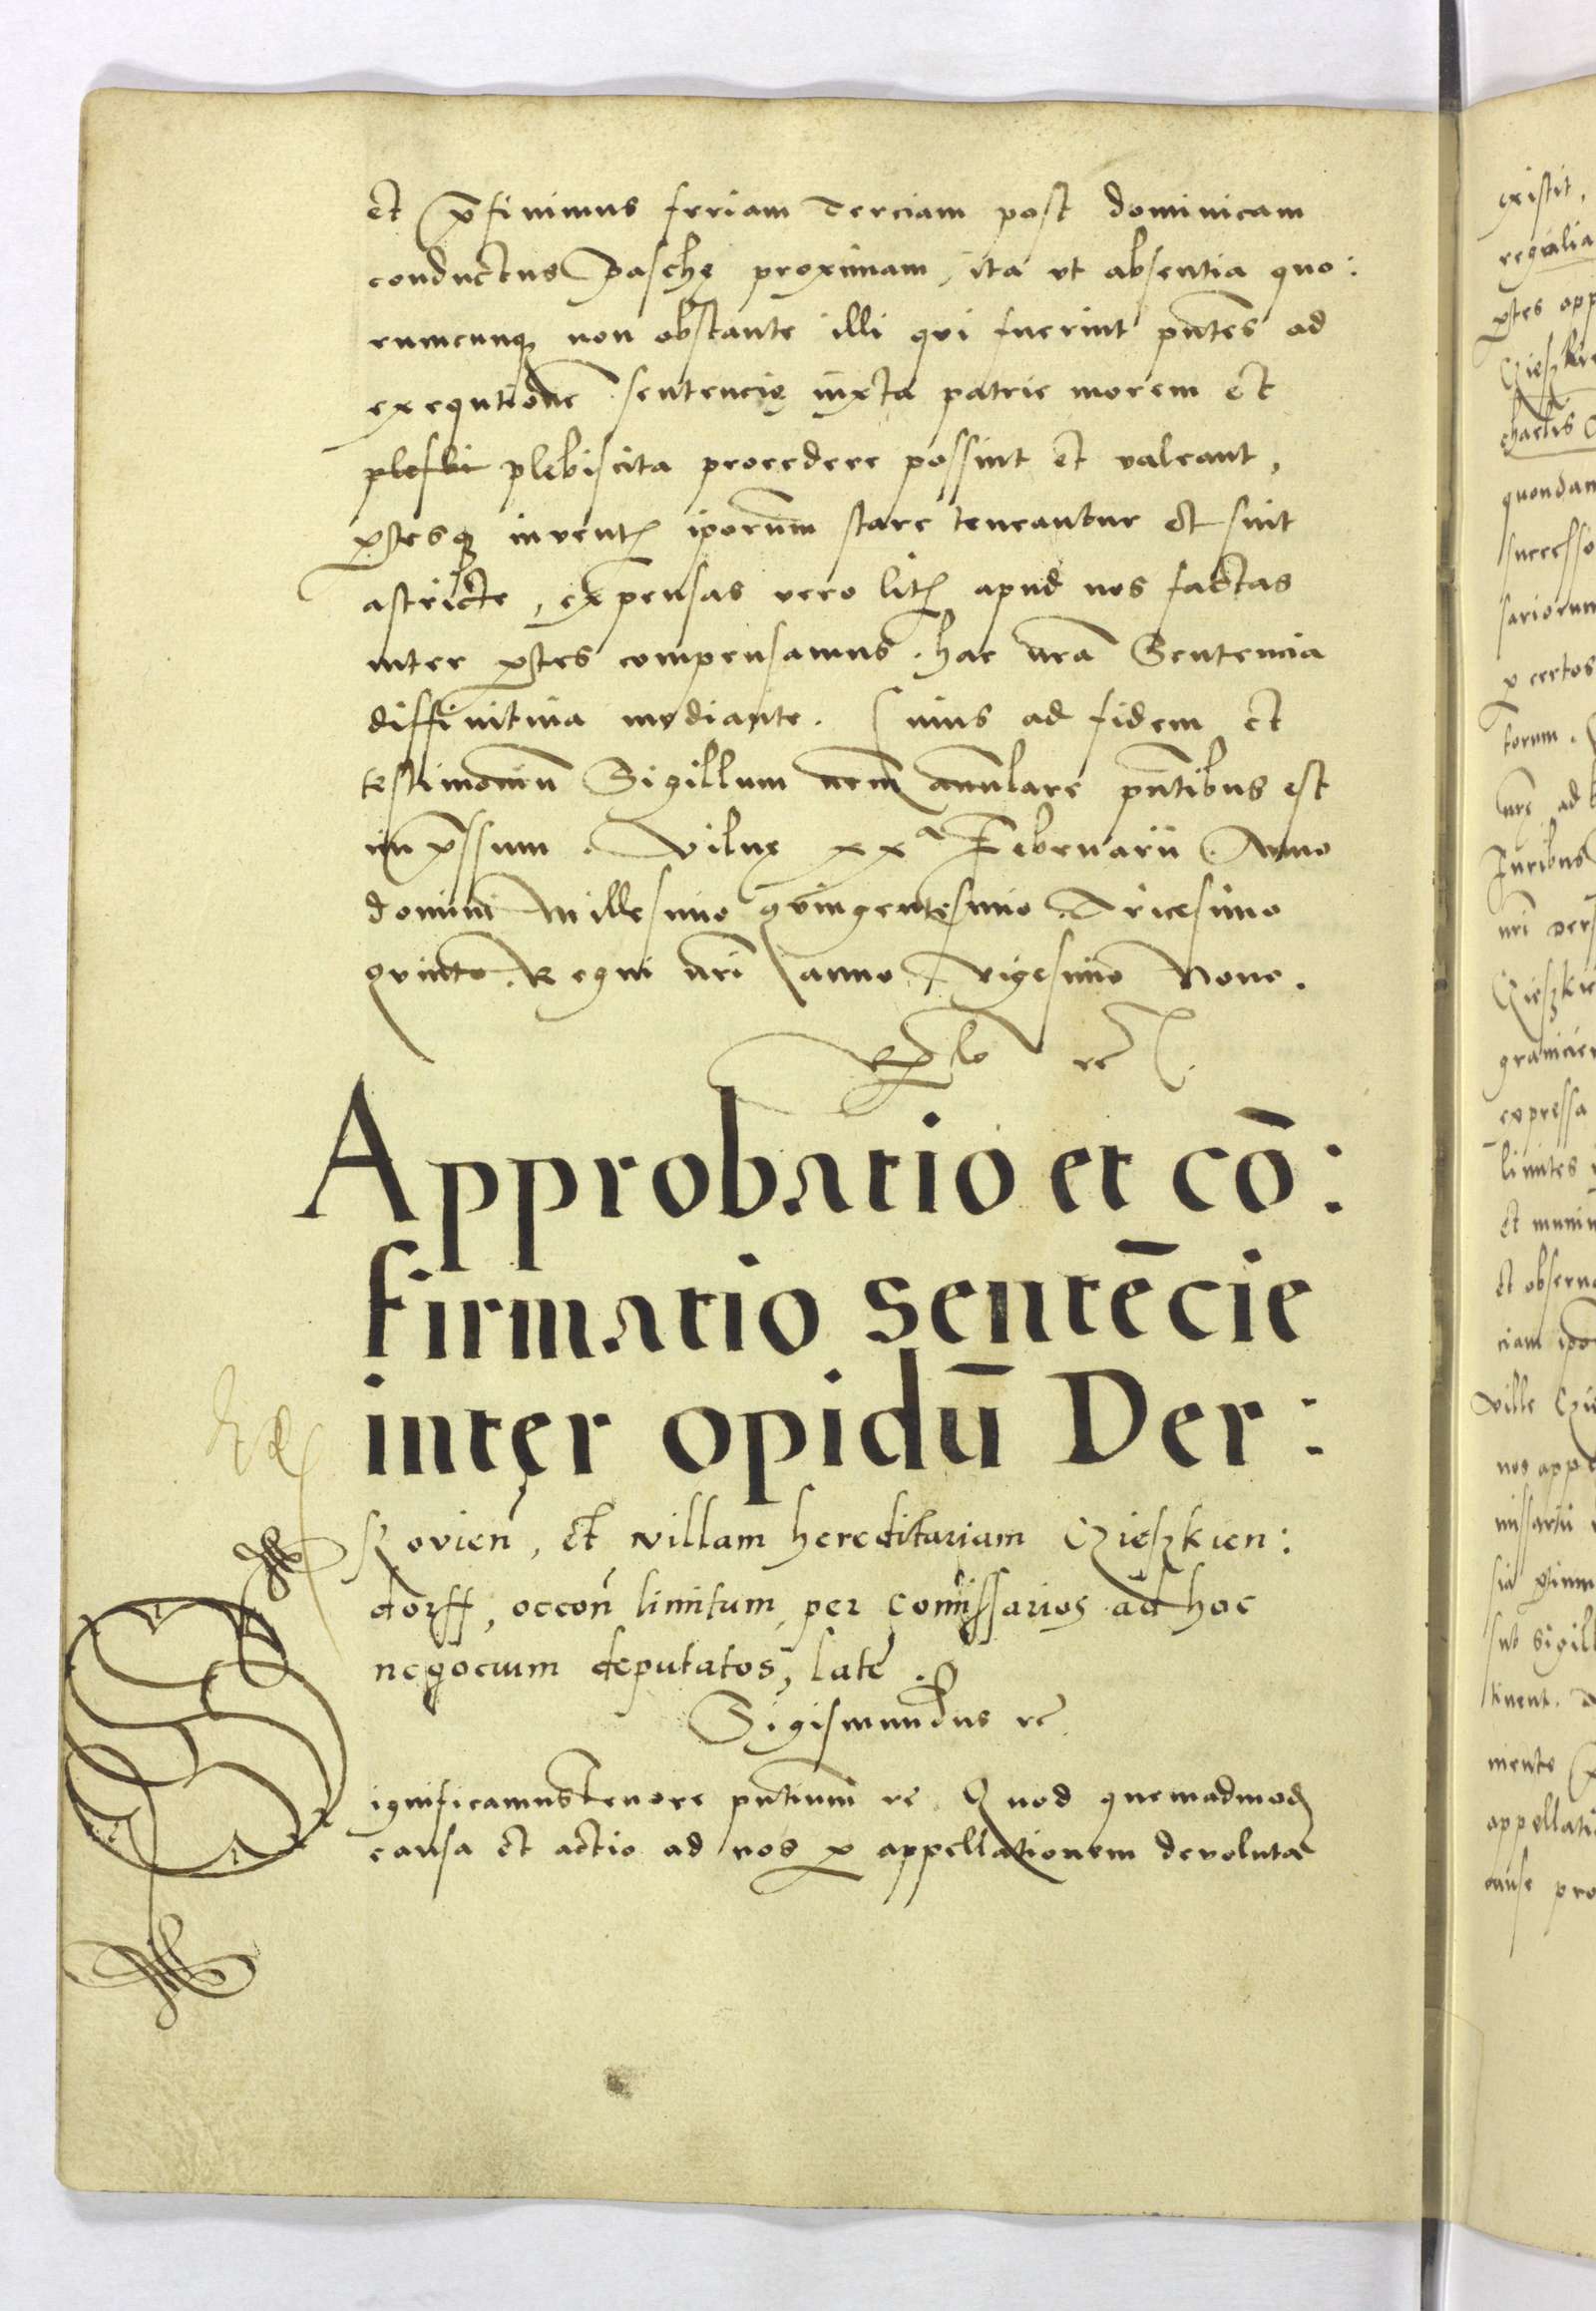 et p̄finimus feriam terciam post dominicam
conductus Paschę proximam, ita ut absentia quo:
rumcunq₃ non obstante illi qui fuerint pn̄tes ad
exequtionē sentencię iuxta patrie morem et
plesbi plebiscita procedere possint et valeant,
ꝑtesq₃ inventꝭ ip̄orum stare teneantur et sint
astricte, expensas vero litꝭ apud nos factas
inter ꝑtes compensamus. hac nr̄a Sentencia
diffinitiva mediante. Cuius ad fidem et
testimoniū Sigillum nr̄m annulare pn̄tibus est
imp̄ssum. Vilnę xxª Februarii. Anno
domini Millesimo quingentesimo Tricesimo
quinto. Regni nr̄i anno vigesimo Nono.
Approbatio et cō:
firmatio sentēcie
inter opidū Der:
Sovien̄, et villam hereditariam Czieszkien:
dorff, occon̄ limitum per comissarios ad hoc
negocium deputatos, late.
Sigismundus rc̄
Significamus tenore pn̄tium rc̄. Quod quemadmodꝫ
causa et actio ad nos ꝑ appellationem devoluta
existit,
regalia
ꝑtes app
Czieszkie
quondam
successo
sariorum
ꝑ certos
torum.
nrę ad
Iuribus
nr̄i
Czieszkie
granicie
expressa
limites
et muni
et observa
ciam ip̄o
ville Czie
nos app
missarii
sia ꝑtium
sub sigill
tinent.
mente
appellati
cause pro